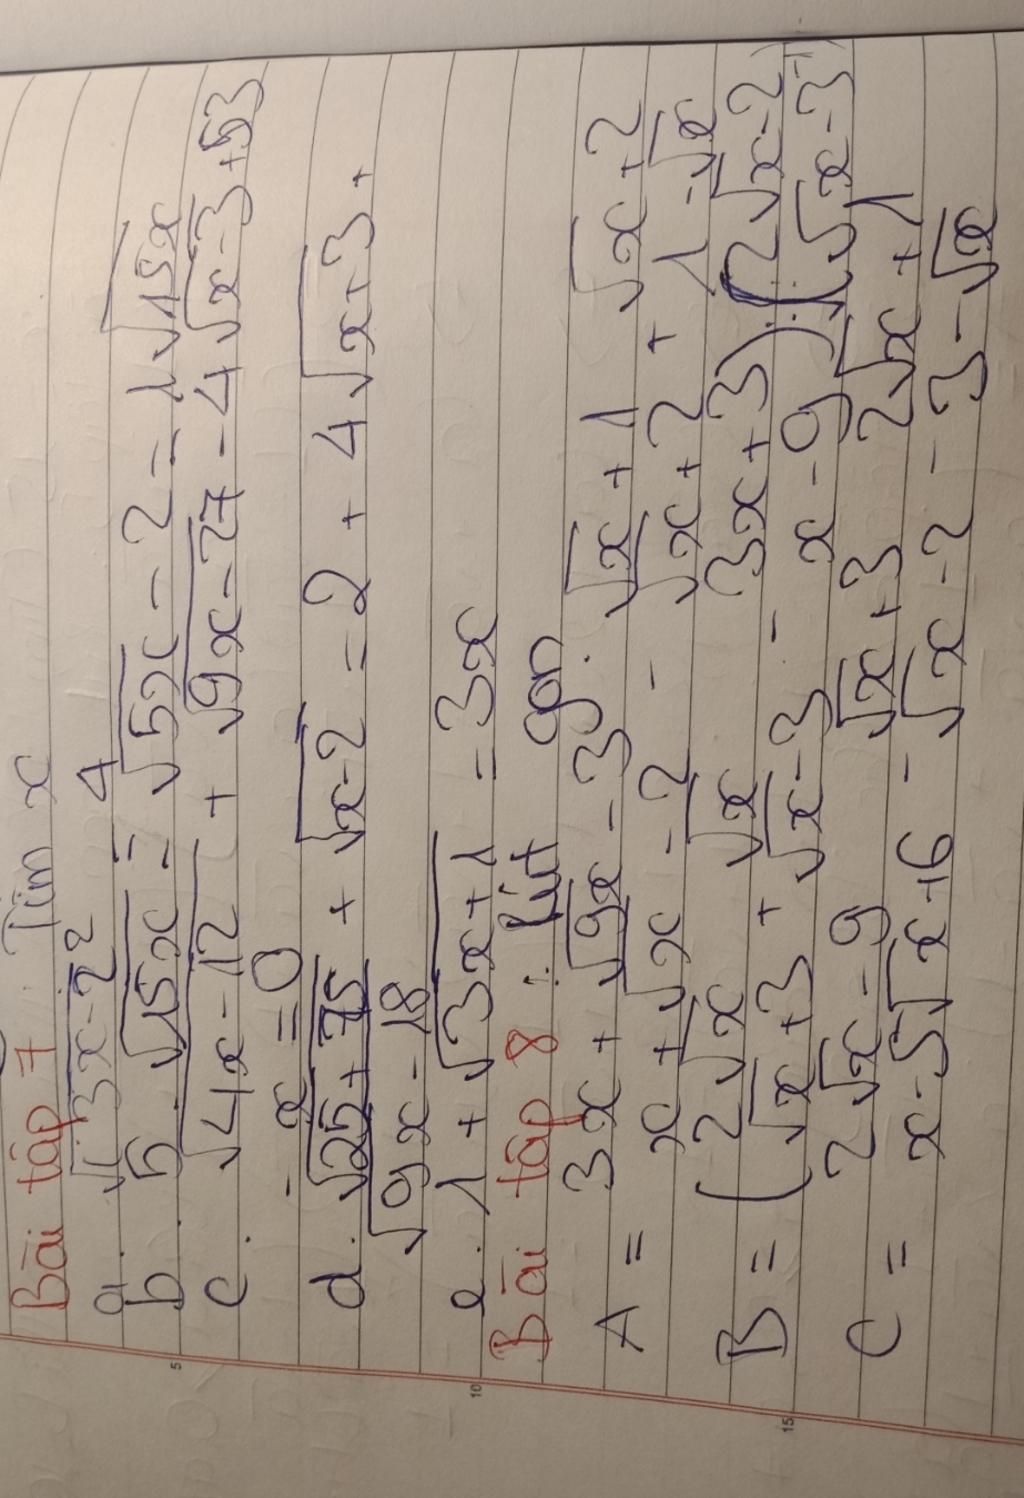 Bài tập 7. Tìm x
a. √3x-2² = 4
b. 5√15x = √5x - 2 = 1√15x
c. √4x-12 + √9x-27 - 4√x-3 + 53
- x = 0
d. √25+75 + √x-2 = 2 + 4√x+3 +
√9x-18
e. 1 + √3x+1 = 3x
Bài tập 8: Rút gọn.
A = (3x + √9x - 3)/(x + √x - 2) - (√x + 1)/(√x + 2) + (√x + 2)/(1 - √x)
B = (2√x/(√x + 3) + √x/(√x - 3) - (3x + 3)/(x - 9)) : ((2√x - 2)/(√x - 3) - 1)
C = (2√x - 9)/(x - 5√x + 6) - (√x + 3)/(√x - 2) - (2√x + 1)/(3 - √x)
5
10
15